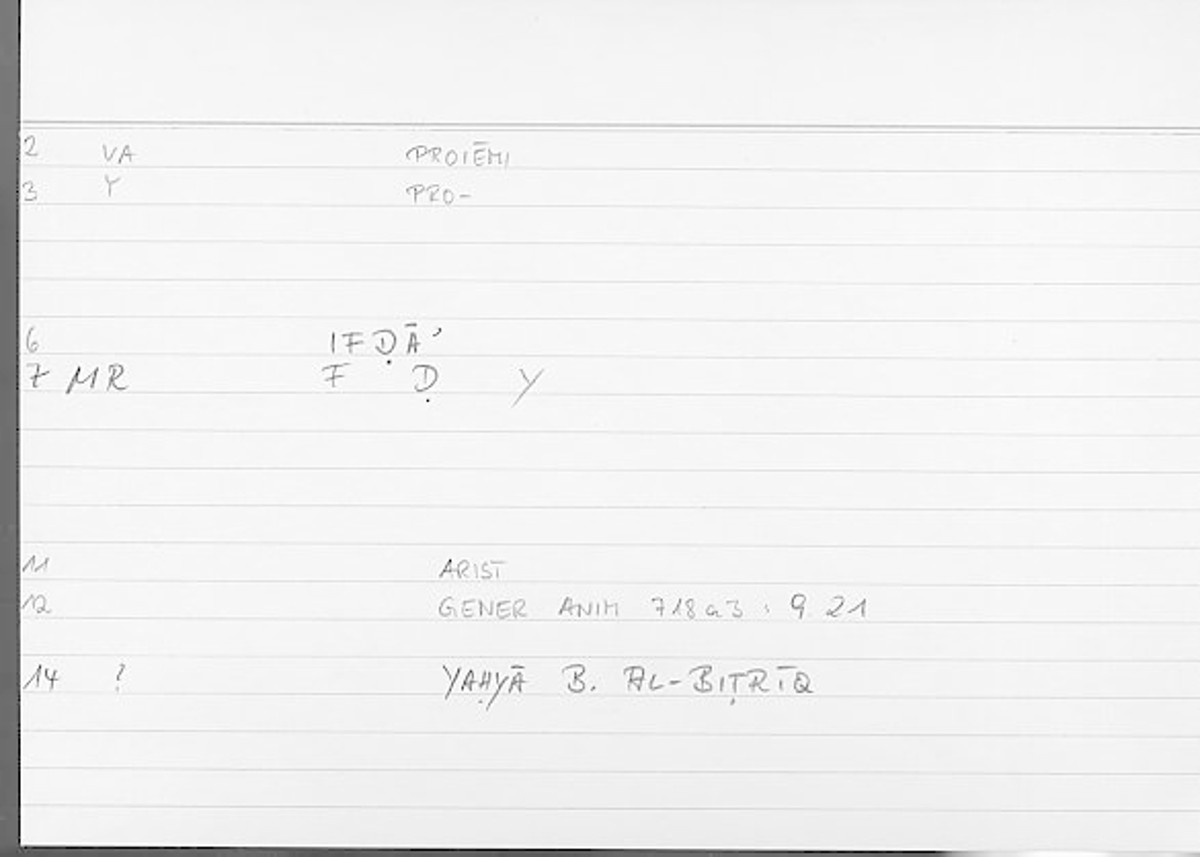 2 VA PROIĒMI
3 Y PRO-
6 IFḌĀʾ
7 MR F Ḍ Y
11 ARIST
12 GENER ANIM 718a3 : 9.21
14 ? YAḤYĀ B. AL-BIṬRĪQ